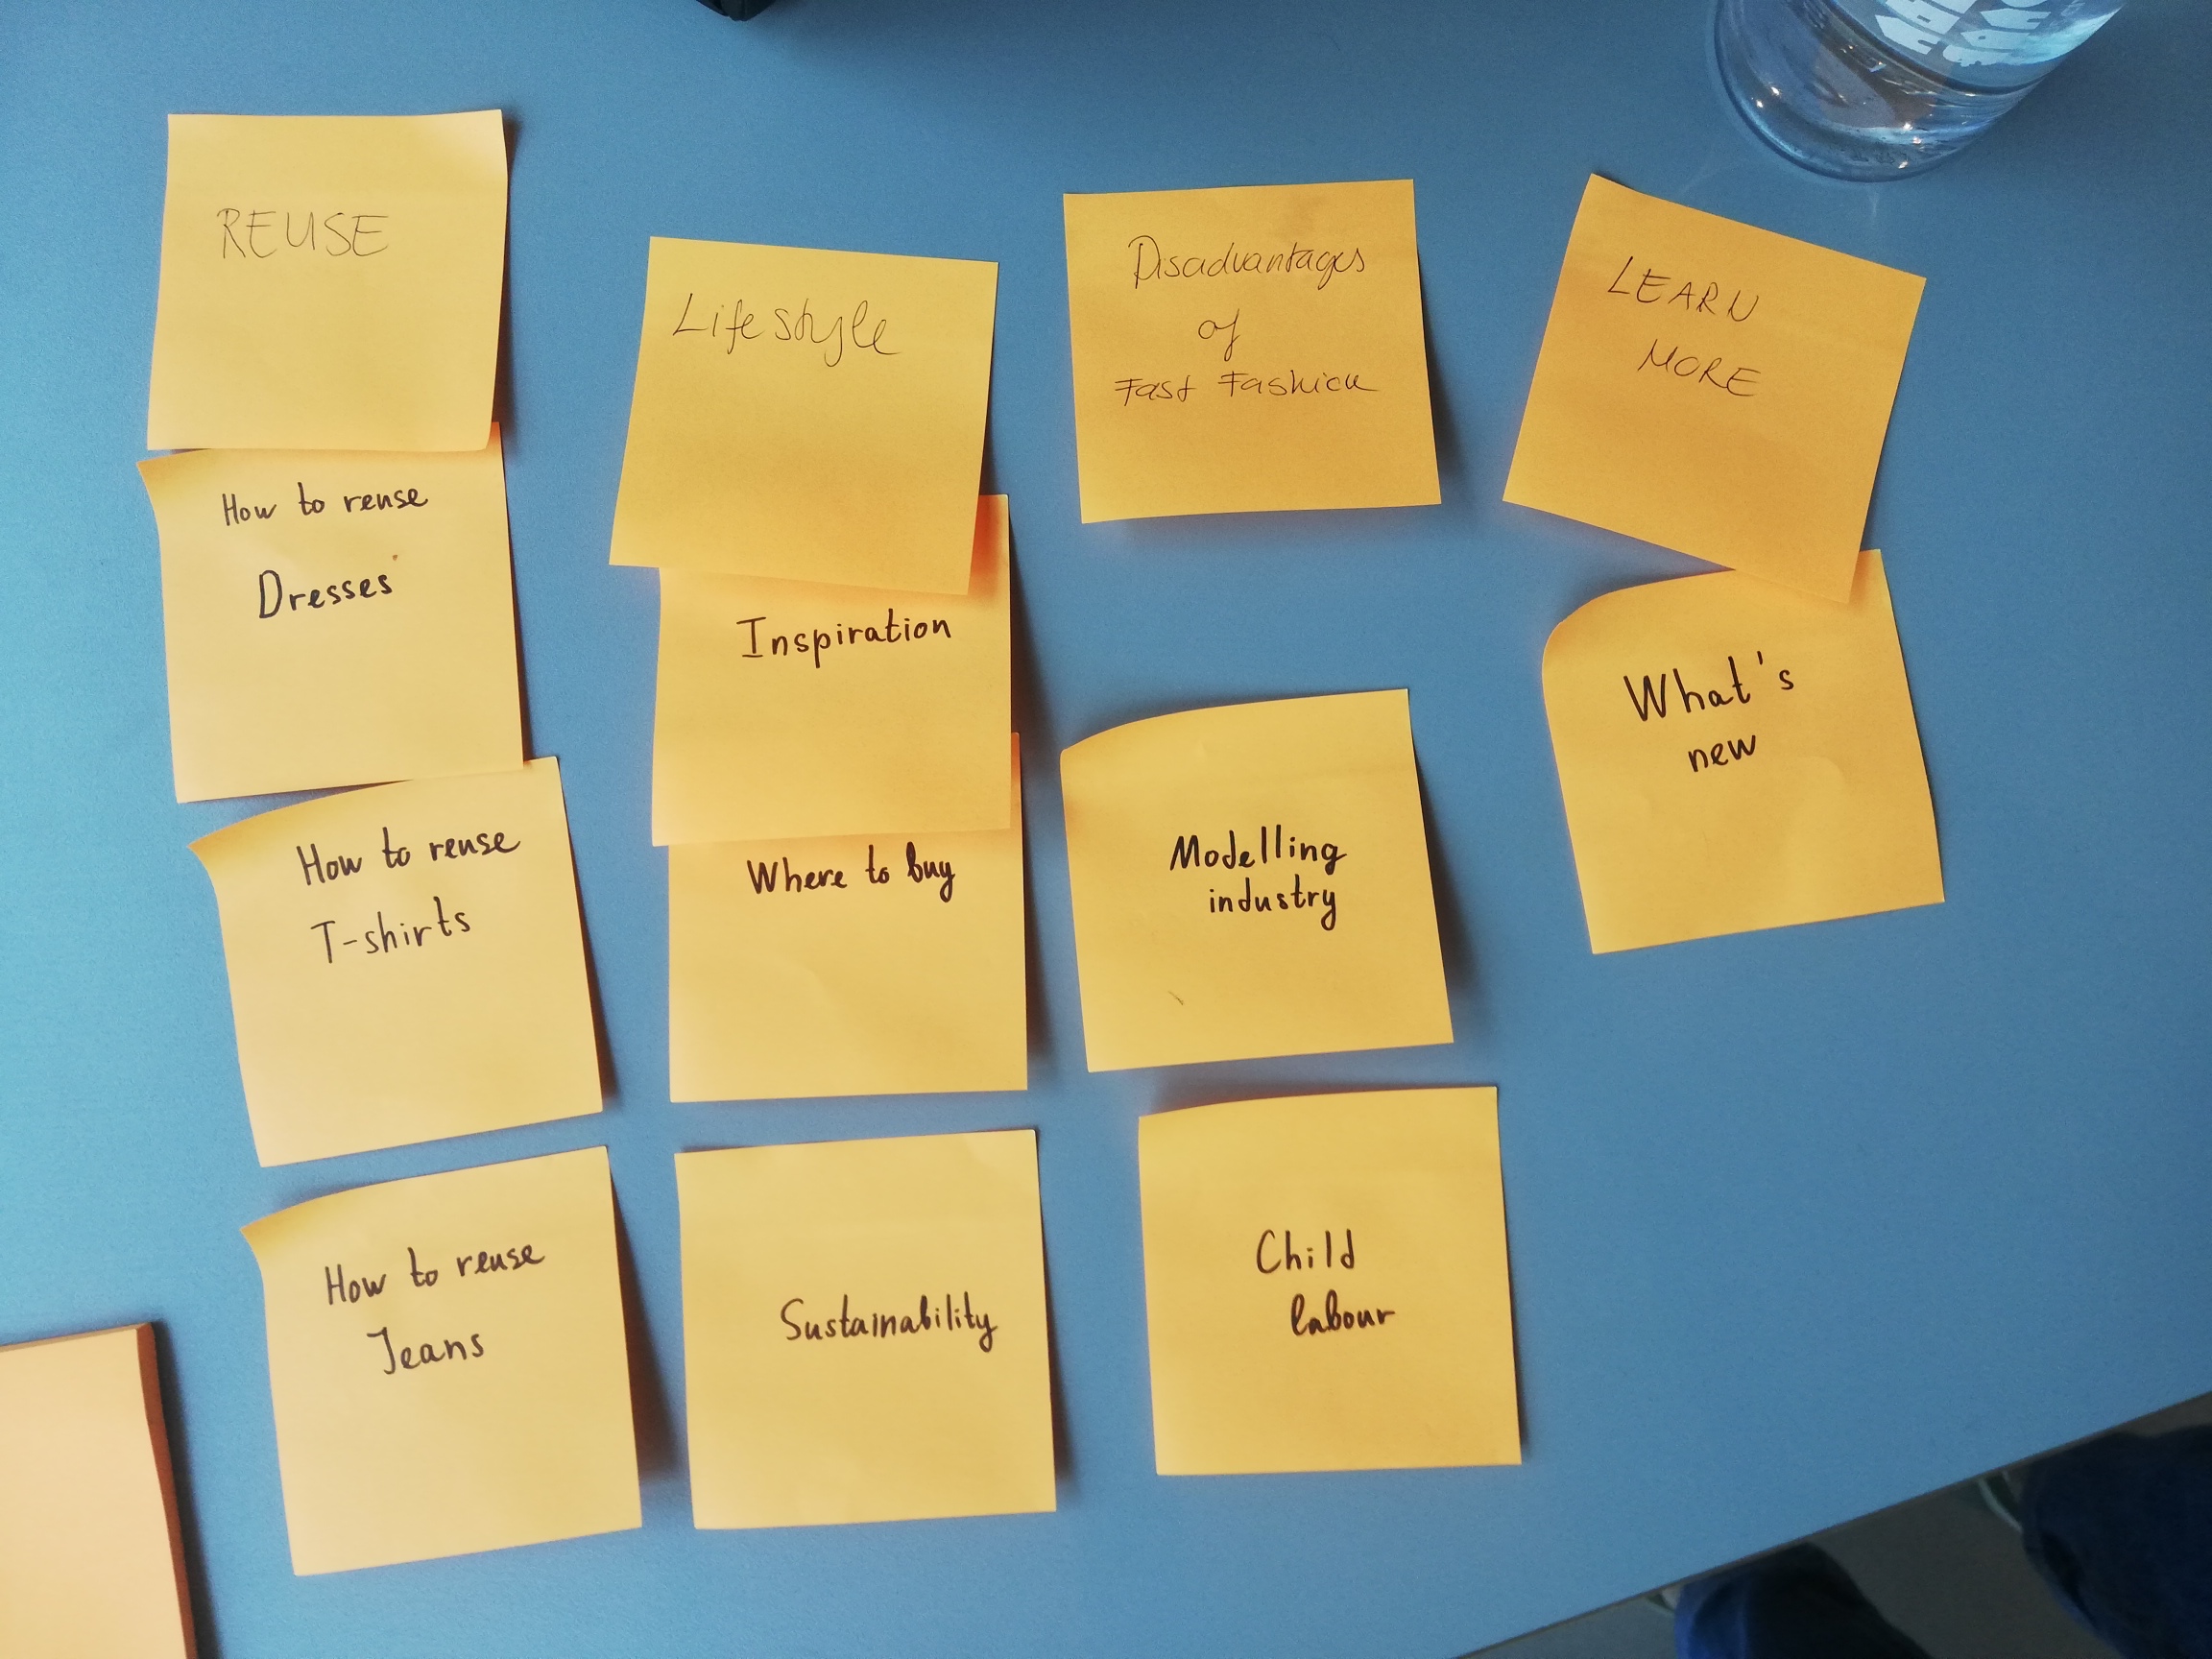 REUSE
How to reuse
Dresses
How to reuse
T-shirts
How to reuse
Jeans
Lifestyle
Inspiration
Where to buy
Sustainability
Disadvantages
of
Fast Fashion
Modelling
industry
Child
labour
LEARN
MORE
What's
new